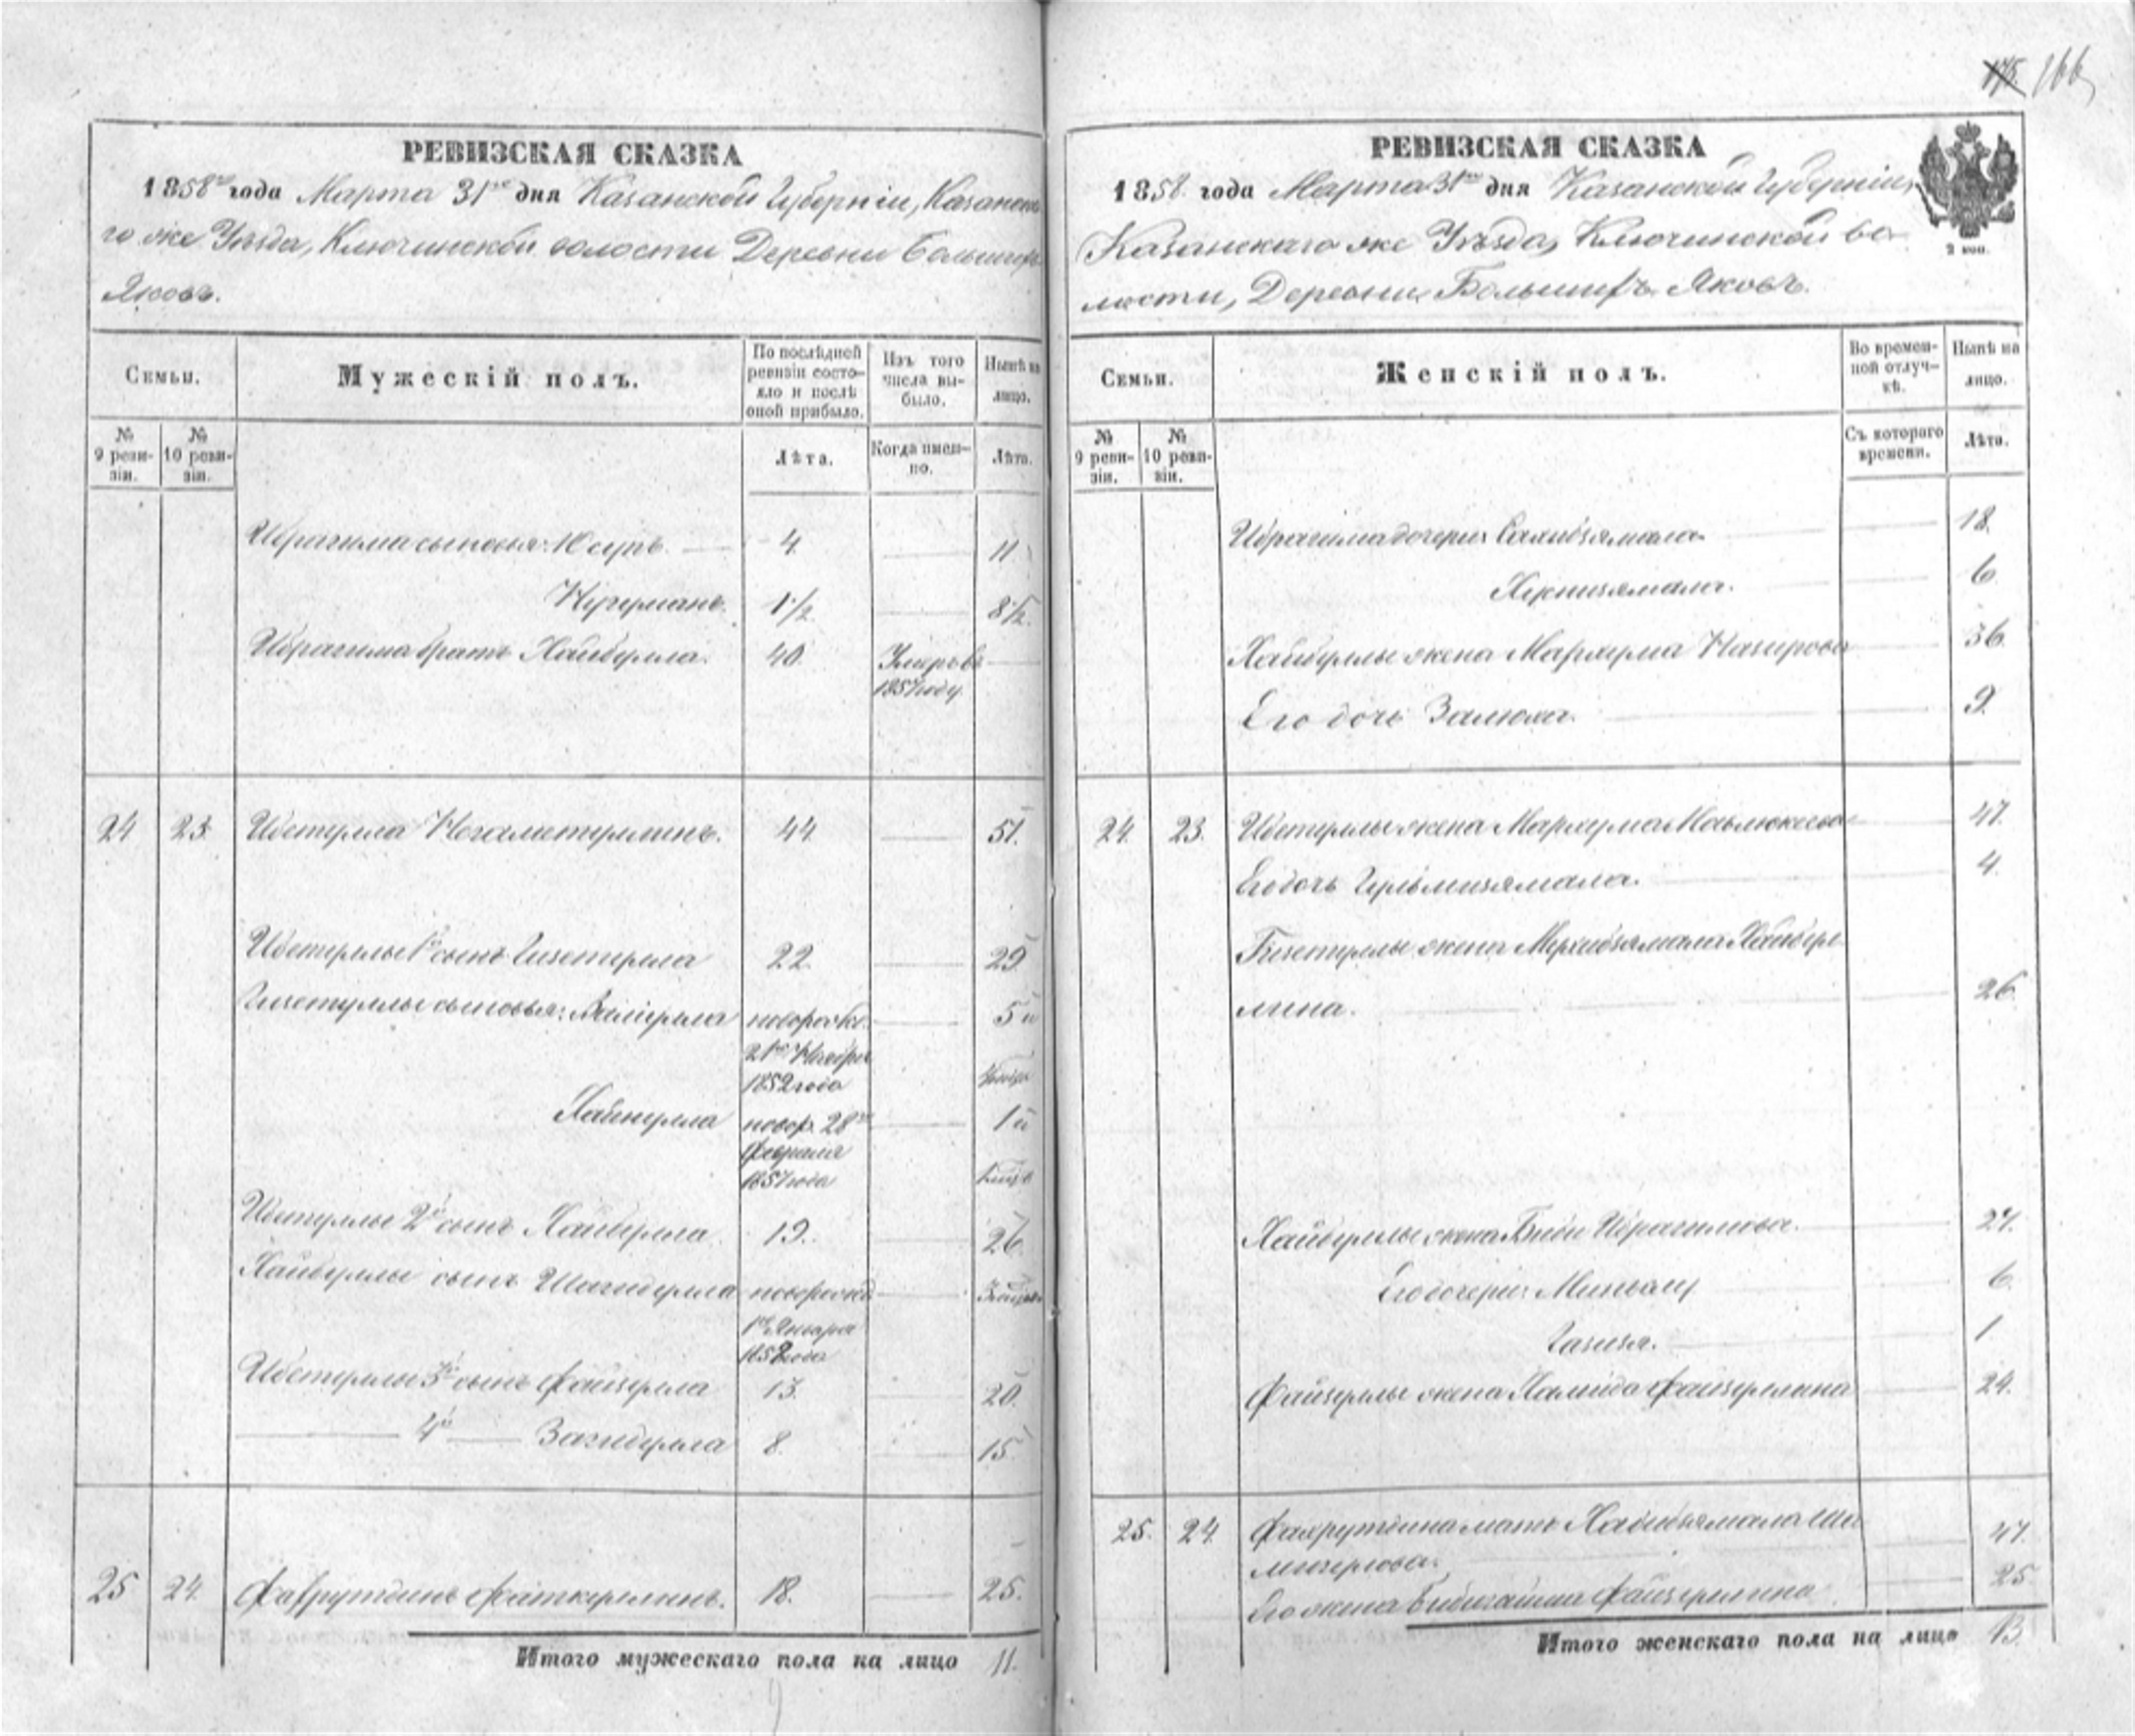 175. 166
РЕВИЗСКАЯ СКАЗКА
1858го года Марта 31го дня Казанской Губерніи, Казанска
го же Уѣзда, Ключинской волости Деревни Большихъ
Яковъ.
Семьи.
Мужескій полъ.
По послѣдней ревизіи состояло и послѣ оной прибыло.
Изъ того числа выбыло.
Нынѣ на лицо.
№ 9 ревизіи.
№ 10 ревизіи.
Лѣта.
Когда именно.
Лѣта.
Ибрагима сыновья: Юсупъ. 4. 11.
Нугуманъ. 1 1/2 8 1/2.
Ибрагима братъ Хайбулла. 40. Умеръ въ
1857 году.
24 23. Ибетулла Негаметуллинъ. 44. 51.
Ибетуллы 1й сынъ Гизетулла 22. 29
Гизетуллы сыновья: Валиулла новорожд. 5 и
21го Ноября
1852 года
Хайнулла новор. 28го 1 и
Февраля
1857 года
Ибетуллы 2й сынъ Хайбулла. 19. 26.
Хайбуллы сынъ Шагидулла новорожд
1го Января
1858 года
Ибетуллы 3й сынъ Файзулла 13. 20.
4й Загидулла 8. 15
25 24. Фахрутдинъ Фаткуллинъ. 18. 25.
Итого мужескаго пола на лицо 11.
РЕВИЗСКАЯ СКАЗКА
1858 года Марта 31го дня Казанской Губерніи,
Казанскаго же Уѣзда, Ключинской во
лости, Деревни Большихъ Яковъ.
2 коп.
Семьи.
Женскій полъ.
Во временной отлучкѣ.
Нынѣ на лицо.
№ 9 ревизіи.
№ 10 ревизіи.
Съ котораго времени.
Лѣта.
Ибрагима дочери: Сахибзямала. 18.
6
Хайбуллы жена Мархума Назирова 36.
Его дочь Залюха. 9.
24. 23. Ибетуллы жена Мархума 47.
Его дочь Гульмизямала. 4.
Гизетуллы жена Мархибзямала Хайбул
лина. 26
Хайбуллы жена Биби Ибрагимова. 27.
Его дочери: 6.
Газизя. 1
Файзуллы жена Хамида Файзуллина 24.
25. 24. Фахрутдина мать Хабибзямала Ша
47.
Его жена Бибигайши Файзуллина 25.
Итого женскаго пола на лицо 13.